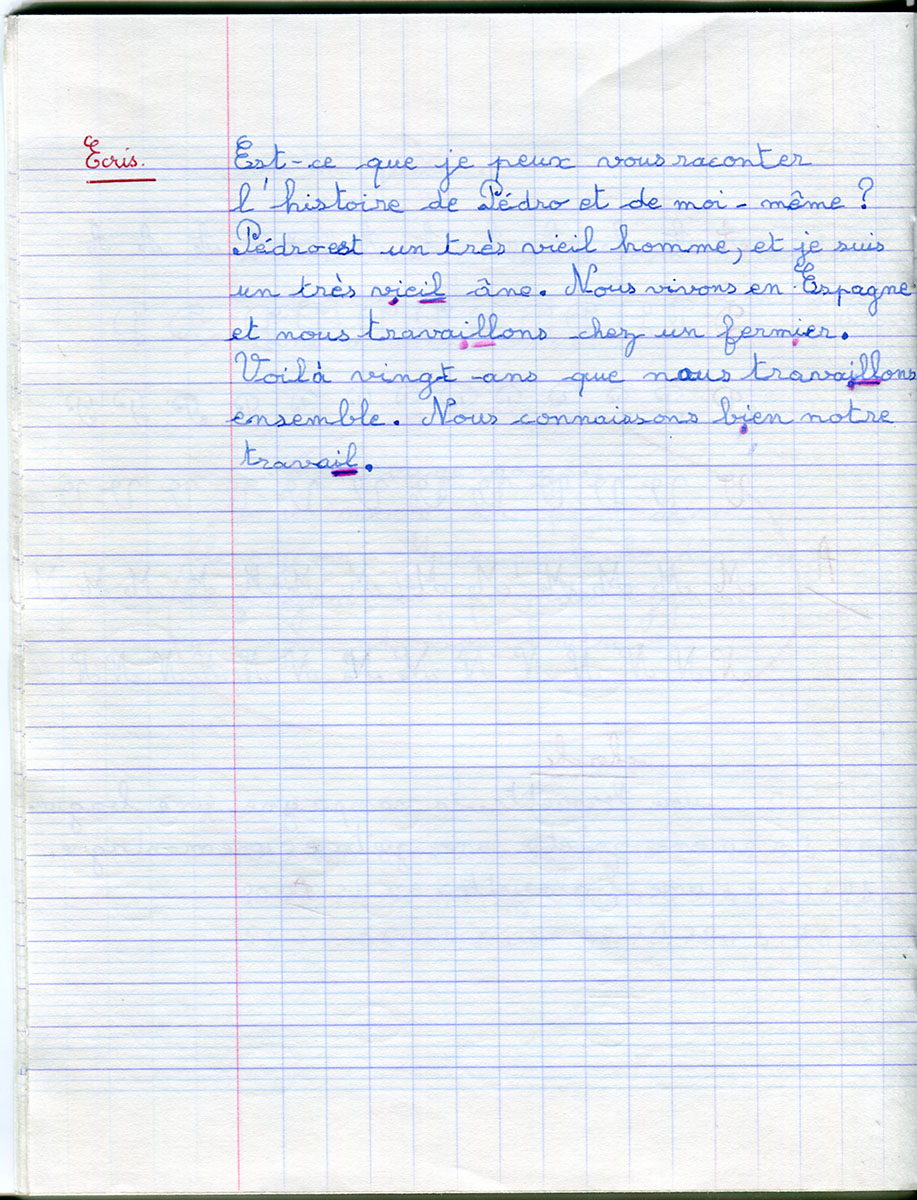 Ecris. Est-ce que je peux vous raconter
l'histoire de Pédro et de moi-même ?
Pédro est un très vieil homme, et je suis
un très vieil âne. Nous vivons en Espagne
et nous travaillons chez un fermier.
Voilà vingt ans que nous travaillons
ensemble. Nous connaissons bien notre
travail.